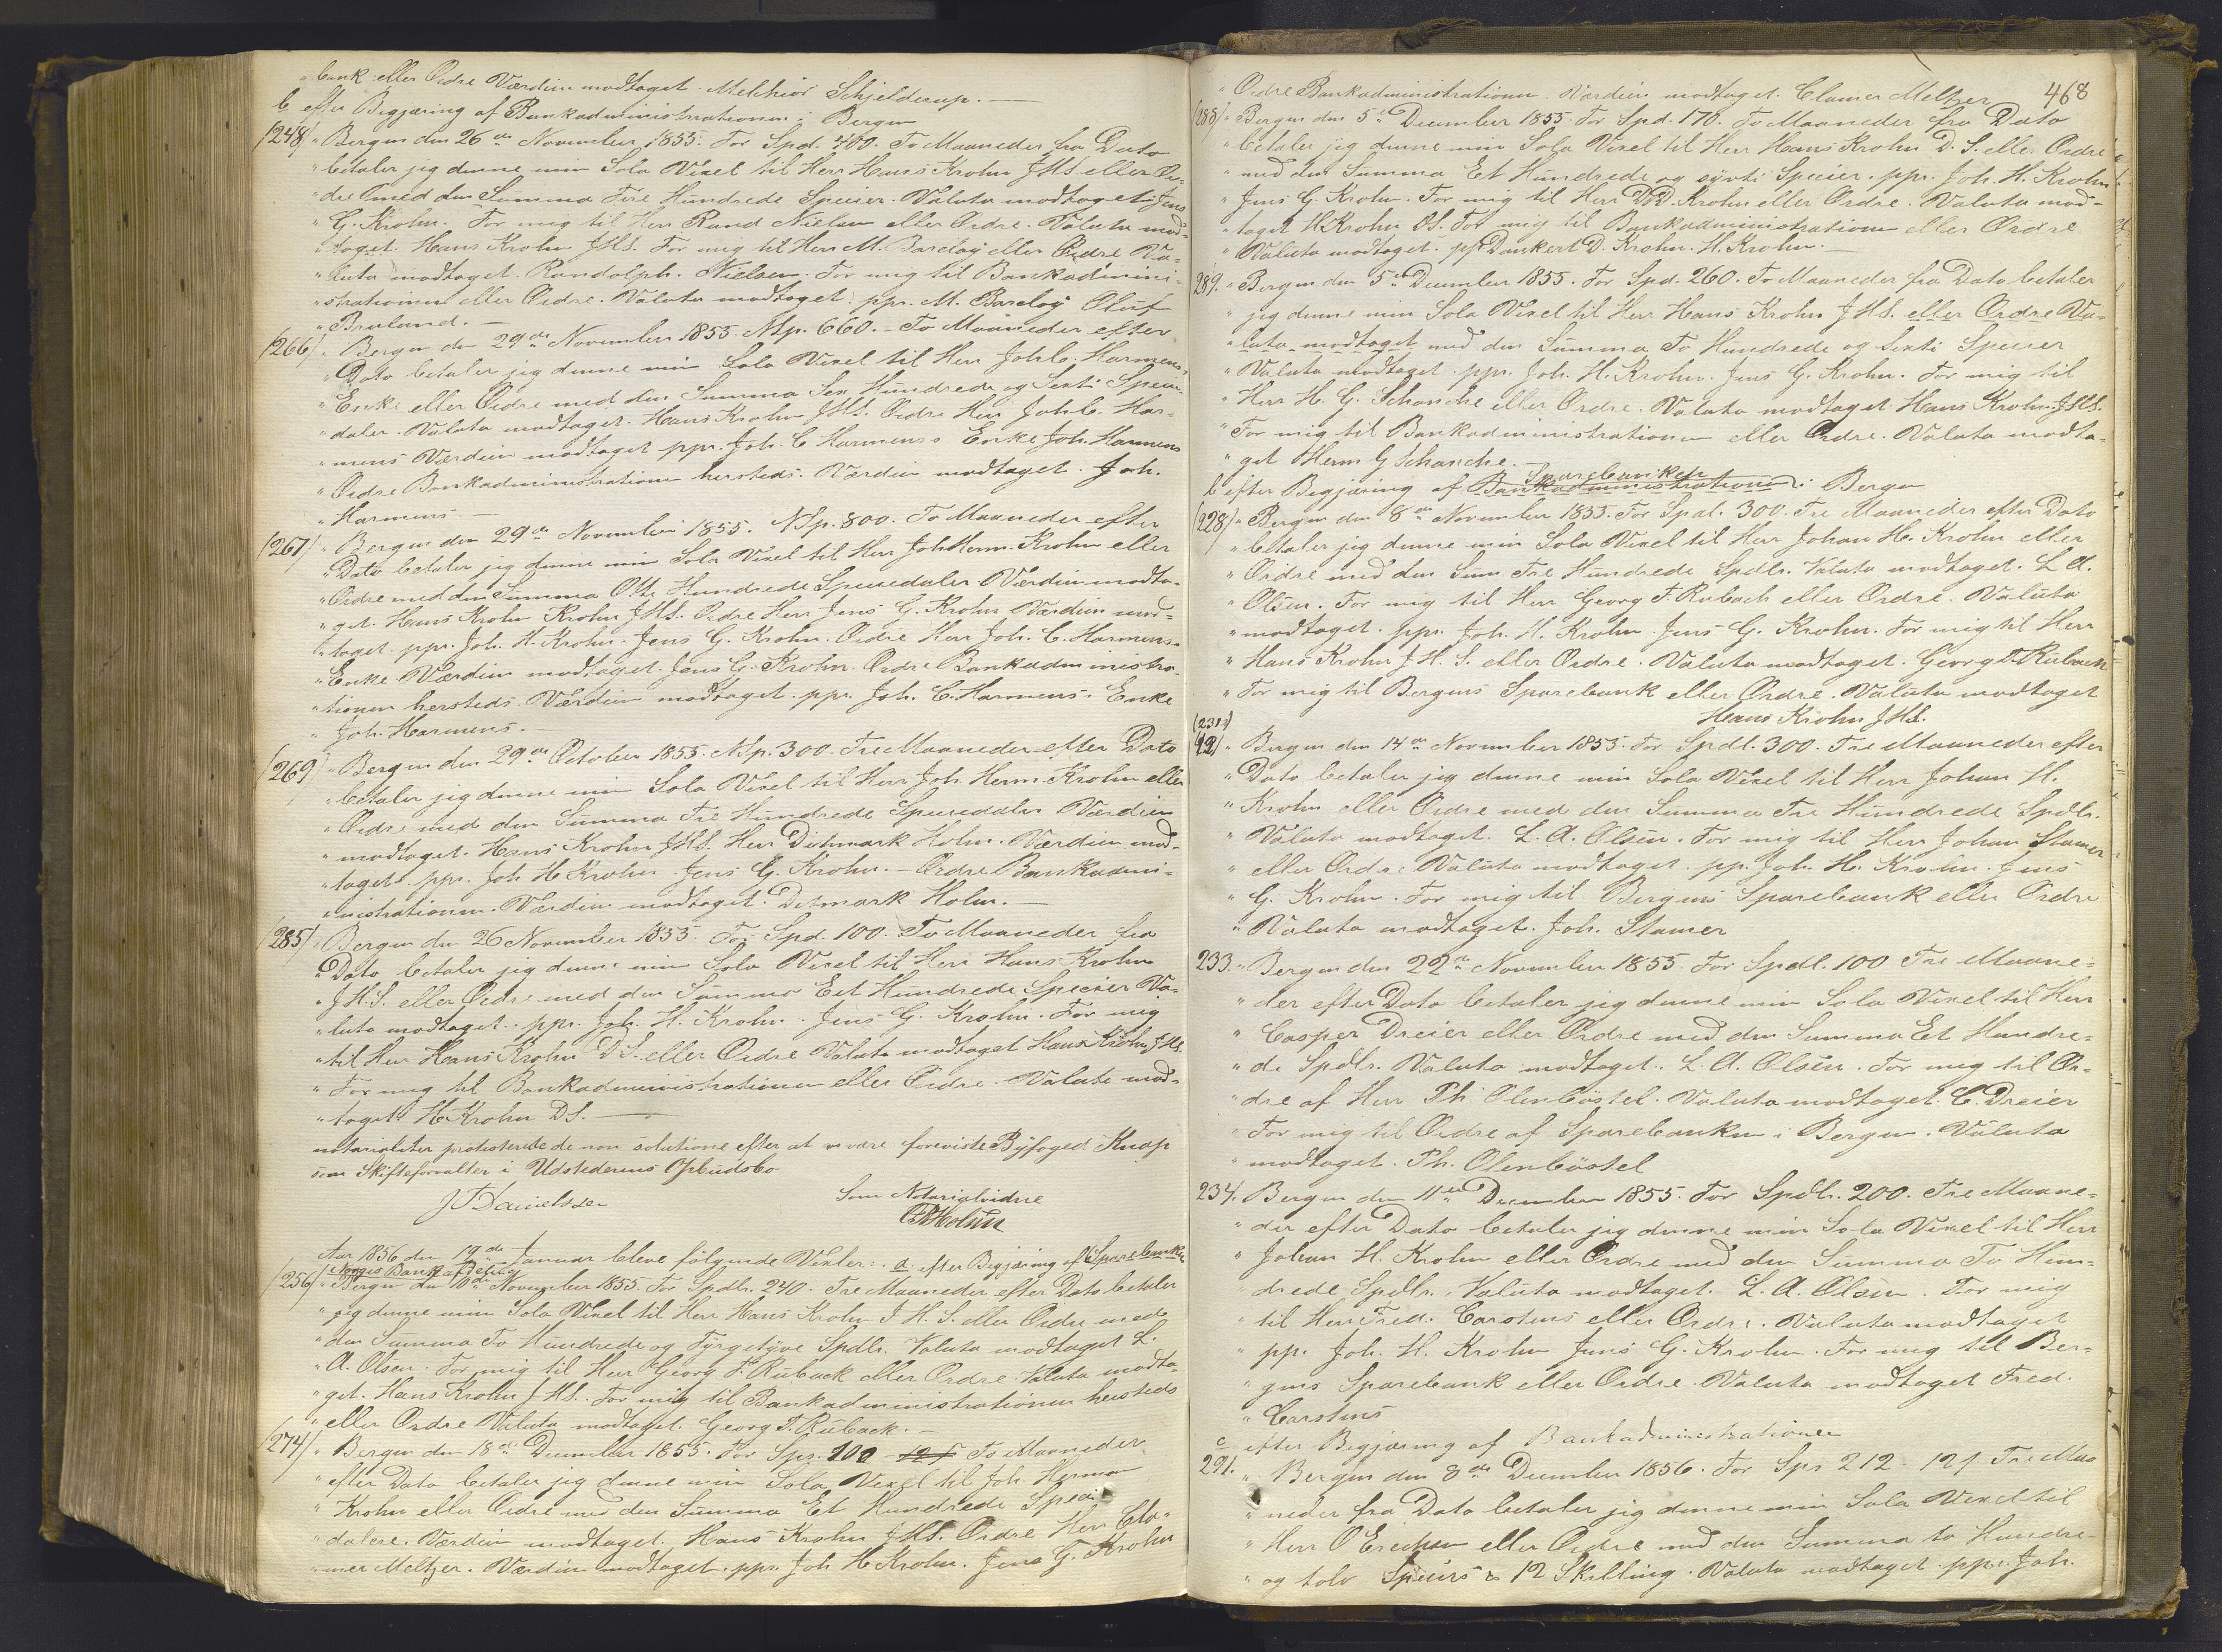 " bank eller Ordre Værdien modtaget. Melchior Schjelderup. —
b efter Begjæring af Bankadministrationen i Bergen
(248) " Bergen den 26de November 1855. For Spd. 400. To Maaneder fra Dato
" betaler jeg denne min Sola Vexel til Herr Hans Krohn JHS. eller Or=
" dre med den Summa Fire Hundrede Specier. Valuta modtaget Jens
" G. Krohn. For mig til Herr Rand Nielsen eller Ordre. Valuta mod=
" taget. Hans Krohn JHS. For mig til Herr M. Barclay eller Ordre Va=
" luta modtaget. Randolph. Nielsen. For mig til Bankadmini=
" strationen eller Ordre. Valuta modtaget: ppr. M. Barclay Oluf
" Bruland. —
(266) " Bergen den 29de November 1855. NSp. 660. – To Maaneder efter
" Dato betaler jeg denne min Sola Vexel til Herr Joh. C. Harmens
" Enke eller Ordre med den Summa Sex Hundrede og Sexti Specie=
" daler. Valuta modtaget. Hans Krohn JHS. Ordre Herr Joh. C. Har=
" mens Værdien modtaget ppr. Joh. C Harmens's Enke Joh. Harmens
" Ordre Bankadministrationen hersteds. Værdien modtaget. Joh.
" Harmens. —
(267) " Bergen den 29de November 1855. NSp. 800. To Maaneder efter
" Dato betaler jeg denne min Sola Vexel til Herr Joh Herm. Krohn eller
" Ordre med den Summa Otte Hundrede Speciedaler Værdien modta=
" get. Hans Krohn Krohn JHS. Ordre Herr Jens G. Krohn Værdien mod=
" taget. ppr. Joh. H. Krohn. Jens G. Krohn. Ordre Herr Joh. C. Harmens
" Enke Værdien modtaget. Jens G. Krohn. Ordre Bankadministra=
" tionen hersteds. Værdien modtaget. ppr. Joh. C. Harmens. Enke
" Joh. Harmens. —
(269) " Bergen den 29de October 1855. NSp. 300. Tre Maaneder efter Dato
" betaler jeg denne min Sola Vexel til Herr Joh. Herm. Krohn eller
" Ordre med den Summa Tre Hundrede Speciedaler Værdien
" modtaget. Hans Krohn JHS. Herr Ditmark Holm. Værdien mod=
" taget. ppr. Joh. H Krohn Jens G. Krohn. – Ordre Bankadmi=
" nistrationen. Værdien modtaget. Ditmark Holm. —
(285) " Bergen den 26 November 1855. For Spd. 100. To Maaneder fra
" Dato betaler jeg denne min Sola Vexel til Herr Hans Krohn
" J.H.S. eller Ordre med den Summa Eet Hundrede Specier Va=
" luta modtaget. ppr. Joh. H. Krohn. Jens G. Krohn. For mig
" til Herr Hans Krohn D.S. eller Ordre Valuta modtaget Hans Krohn JHS.
" For mig til Bankadministrationen eller Ordre. Valuta mod=
" taget H. Krohn DS. —
notarialiter protesterede de non solutione efter at være foreviste Byfoged Knap
som Skifteforvalter i Udstederens Opbudsbo
J Danielssen
Som Notarialvidne
Aar 1856 den 19de Januar bleve følgende Vexler: a. efter Begjæring af Sparebanken
Norges Bank afdeling
(256) " Bergen den 10de November 1855. For Spdlr. 240. Tre Maaneder efter Dato betaler
" jeg denne min Sola Vexel til Herr Hans Krohn J. H. S. eller Ordre med
" den Summa To Hundrede og Fyrgetyve Spdlr. Valuta modtaget L.
" A. Olsen. For mig til Herr Georg F. Rubach eller Ordre. Valuta modta=
" get. Hans Krohn JHS. For mig til Bankadministrationen hersteds
" eller Ordre Valuta modtaget. Georg F. Rubach. —
(274) " Bergen den 18de December 1855. For Sps. 100 – 12 ß To Maaneder
" efter Dato betaler jeg denne min Sola Vexel til Joh. Herman
" Krohn eller Ordre med den Summa Et Hundrede Specie
" dalere. Værdien modtaget. Hans Krohn JHS. Ordre Herr Cla=
" mer Meltzer. Værdien modtaget. ppr. Joh H Krohn. Jens G. Krohn
468
" Ordre Bankadministrationen. Værdien modtaget. Clamer Meltzer
(288) " Bergen den 5te December 1855. For Spd. 170. To Maaneder fra Dato
" betaler jeg denne min Sola Vexel til Herr Hans Krohn D. S. eller Ordre
" med den Summa Et Hundrede og sÿvti Specier. ppr. Joh. H. Krohn
" Jens G. Krohn. For mig til Herr D.D. Krohn eller Ordre. Valuta mod=
" taget H Krohn DS. For mig til Bankadministrationen eller Ordre
" Valuta modtaget. ppr Dankert D. Krohn. H. Krohn. —
289. " Bergen den 5te December 1855. For Spd. 260. To Maaneder fra Dato betaler
" jeg denne min Sola Vexel til Herr Hans Krohn JHS. eller Ordre Va=
" luta modtaget med den Summa To Hundrede og Sexti Specier
" Valuta modtaget. ppr. Joh. H. Krohn. Jens G. Krohn. For mig til
" Herr H. G. Schanche eller Ordre. Valuta modtaget Hans Krohn JHS.
" For mig til Bankadministrationen eller Ordre. Valuta modta=
" get Herm G Schanche. —
Sparebanken
b efter Begjæring af Bankadministrationen i Bergen
(228) " Bergen den 8de November 1855. For Spdl. 300. Tre Maaneder efter Dato
" betaler jeg denne min Sola Vexel til Herr Johan H. Krohn eller
" Ordre med den Sum Tre Hundrede Spdlr. Valuta modtaget. L A.
" Olsen. For mig til Herr Georg F. Rubach eller Ordre. Valuta
" modtaget. ppr. Joh. H. Krohn. Jens G. Krohn. For mig til Herr
" Hans Krohn J. H. S. eller Ordre. Valuta modtaget. Georg F. Rubach
" For mig til Bergens Sparebank eller Ordre. Valuta modtaget
Hans Krohn JHS.
(231)
(12) " Bergen den 14de November 1855. For Spdl. 300. Tre Maaneder efter
" Dato betaler jeg denne min Sola Vexel til Herr Johan H.
" Krohn eller Ordre med den Summa Tre Hundrede Spdlr.
" Valuta modtaget. L. A. Olsen. For mig til Herr Johan Stamer
" eller Ordre Valuta modtaget. pp. Joh. H. Krohn. Jens
" G. Krohn. For mig til Bergens Sparebank eller Ordre
" Valuta modtaget. Joh. Stamer
233. " Bergen den 22de November 1855. For Spdl. 100 Tre Maane=
" der efter Dato betaler jeg denne min Sola Vexel til Herr
" Casper Dreier eller Ordre med den Summa Et Hundre=
" de Spdlr. Valuta modtaget. L. A. Olsen. For mig til Or=
" dre af Herr Ph. Olenböstel. Valuta modtaget. C. Dreier
" For mig til Ordre af Sparebanken i Bergen. Valuta
" modtaget. Ph. Olenböstel
234. Bergen den 11te December 1855. For Spdlr. 200. Tre Maane=
" der efter Dato betaler jeg denne min Sola Vexel til Herr
" Johan H. Krohn eller Ordre med den Summa To Hun=
" drede Spdlr. Valuta modtaget. L. A. Olsen. For mig
" til Herr Fred. Carstens eller Ordre. Valuta modtaget
" pp. Joh. H. Krohn Jens G. Krohn. For mig til Ber=
" gens Sparebank eller Ordre. Valuta modtaget Fred.
" Carstens
c efter Begjæring af Bankadministrationen
291. " Bergen den 8de December 1856. For Sps 212 - 12 ß. Tre Maa
" neder fra Dato betaler jeg denne min Sola Vexel til
" Herr O Erichsen eller Ordre med den Summa to Hundre=
" og tolv Specier & 12 Skilling. Valuta modtaget ppr. Joh.